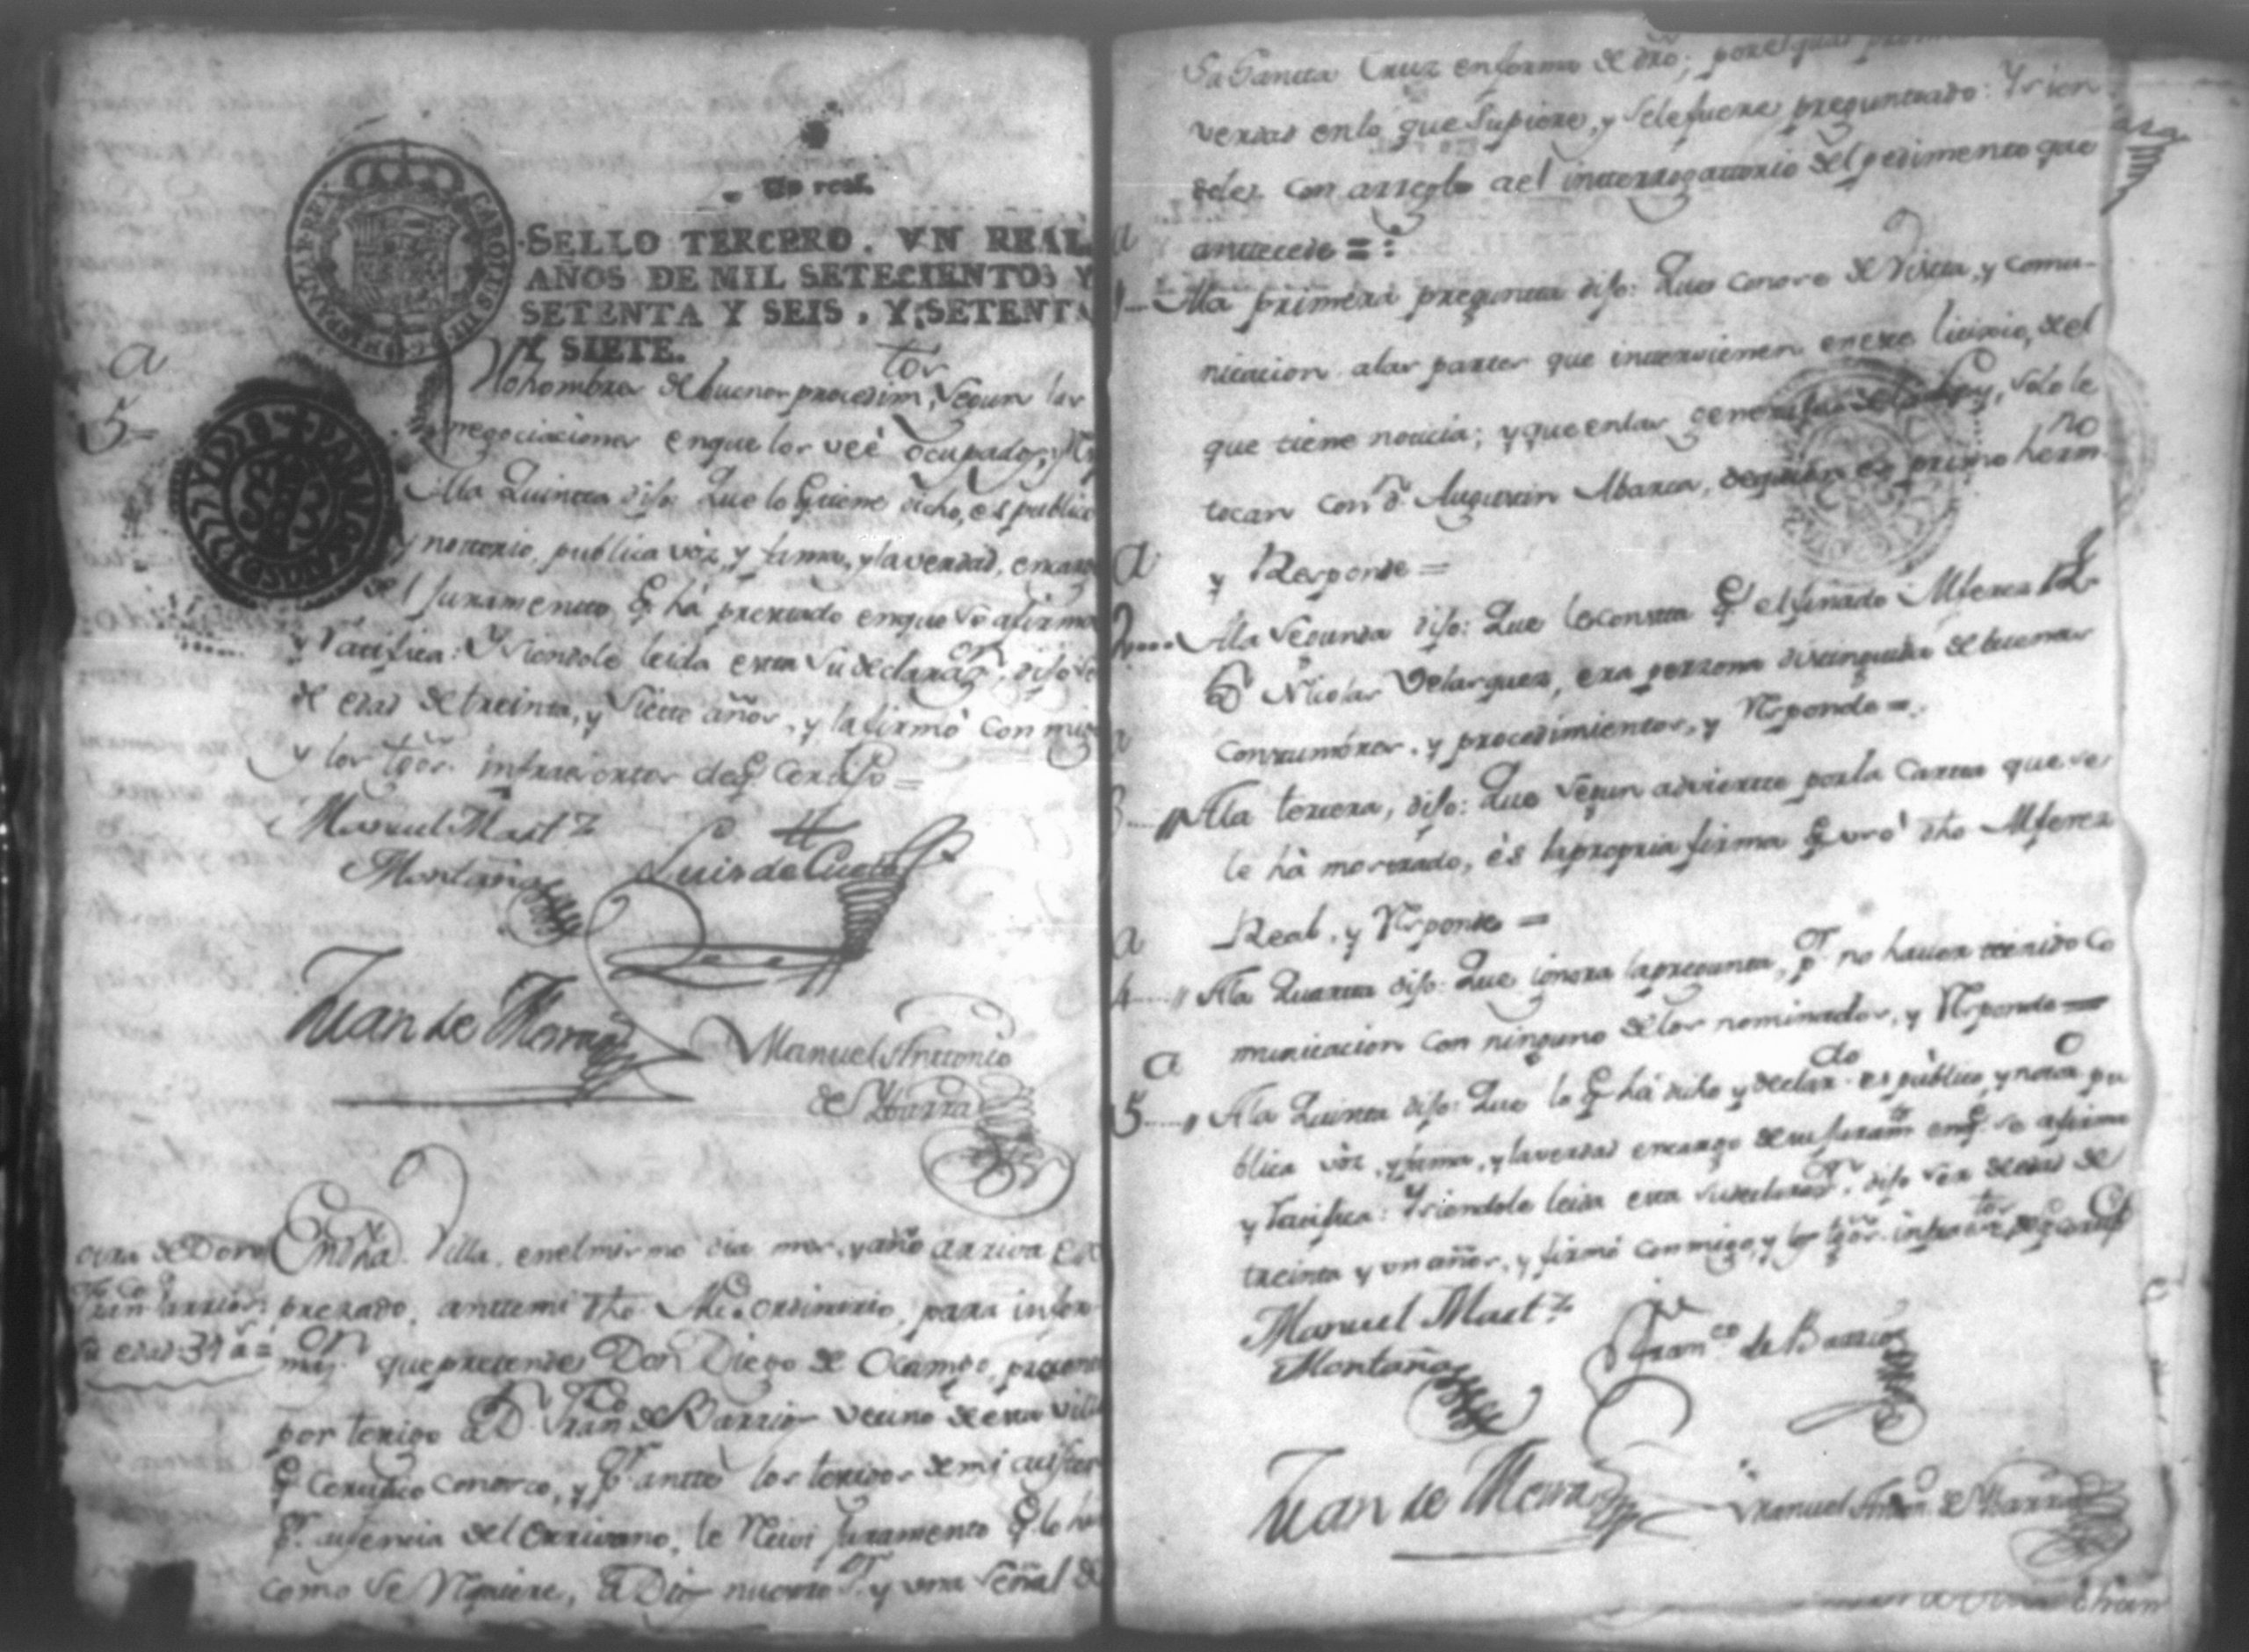 Un real.
SELLO TERCERO. VN REAL
AÑOS DE MIL SETECIENTOS Y
SETENTA Y SEIS, Y SETENTA
Y SIETE.
CAROLUS III
a
hombres de buenos procedim.tos, segun las
negociaciones enque los veè ocupados, y
5 Ala Quintta dijo: Que lo q̃ tiene dicho, es publico
y nottorio, publica vòz, y fama, y la verdad, en cargo
del Juramentto q̃ hà prestado enque se afirma
y ratifica: Y siendole leida estta su declaraz.on, dijo se
de edad de treinta, y Siette años, y la firmò con migo
y los tgõs. infraescritos deq̃ Certifo =
Manuel Mart.z
Montaño
Luis de Cueto
Juan de Merca
Manuel Anttonio
de Ybarra
otra de Don
Fran.co Barrios
su edad 31 a.s =
En dha. Villa, en el mismo dia mes, y año arriva ex
prezado, antte mi dho Alc.e ordinario, para infor
maz.on que pretende Don Diego de Ocampo, presento
por testigo a D.n Fran.co de Barrios vecino de esta villa
q̃ Certifico conosco, y p.r antte los testigos de mi asisten
p.r ausencia del Escrivano, le Reivi Juramento q̃ lo hizo
como se Requiere, â Dios nuestro S.r y una señal de
Su Santta Cruz en forma de dro; por el qual
verdad en lo que Supiere, y se le fuere preguntado: Y sien
dolo con arreglo a el intterrogattorio del pedimento que
anttecede = :
a
1 Ala primera pregunta dijo: Que conoce de Vista, y comu-
nicacion alas partes que inttervienen en este litixio, del
que tiene noticia; y que en las generales de la Ley, solo le
tocan con D.n Augustin Abarca, de quien es primo herm.no
y Responde =
a
2 Ala Segunda dijo: Que le constta q̃ el finado Alferez R.l
D.n Nicolas Velasquez, era perzona distinguida de buenas
consttumbres, y procedimientos, y Rsponde =
a
3 Ala tercera, dijo: Que segun advierte por la Cartta que se
le hà mostrado, ès la propria firma q̃ usò dho Alferez
Real, y Rsponde =
a
4 Ala Quartta dijo: Que ignora la pregunta, p.r no haver tenido Co
municacion con ninguno de los nominados, y Rsponde =
a
5 Ala Quinta dijo: Que lo q̃ hà dicho y declar.do es pùblico, y notor.o pu
blica vòz, y fama, y la verdad en cargo de su juram.to enq̃ se afirma
y ratifica: Y siendole leida esta su declaraz.on, dijo ser de edad de
treinta y un años, y firmò conmigo, y los tgõs. infraescritos deq̃ Certifo
Manuel Mart.z
Montaño
Fran.co de Barrios
Juan de Merca
Manuel Antt.o de Ybarra